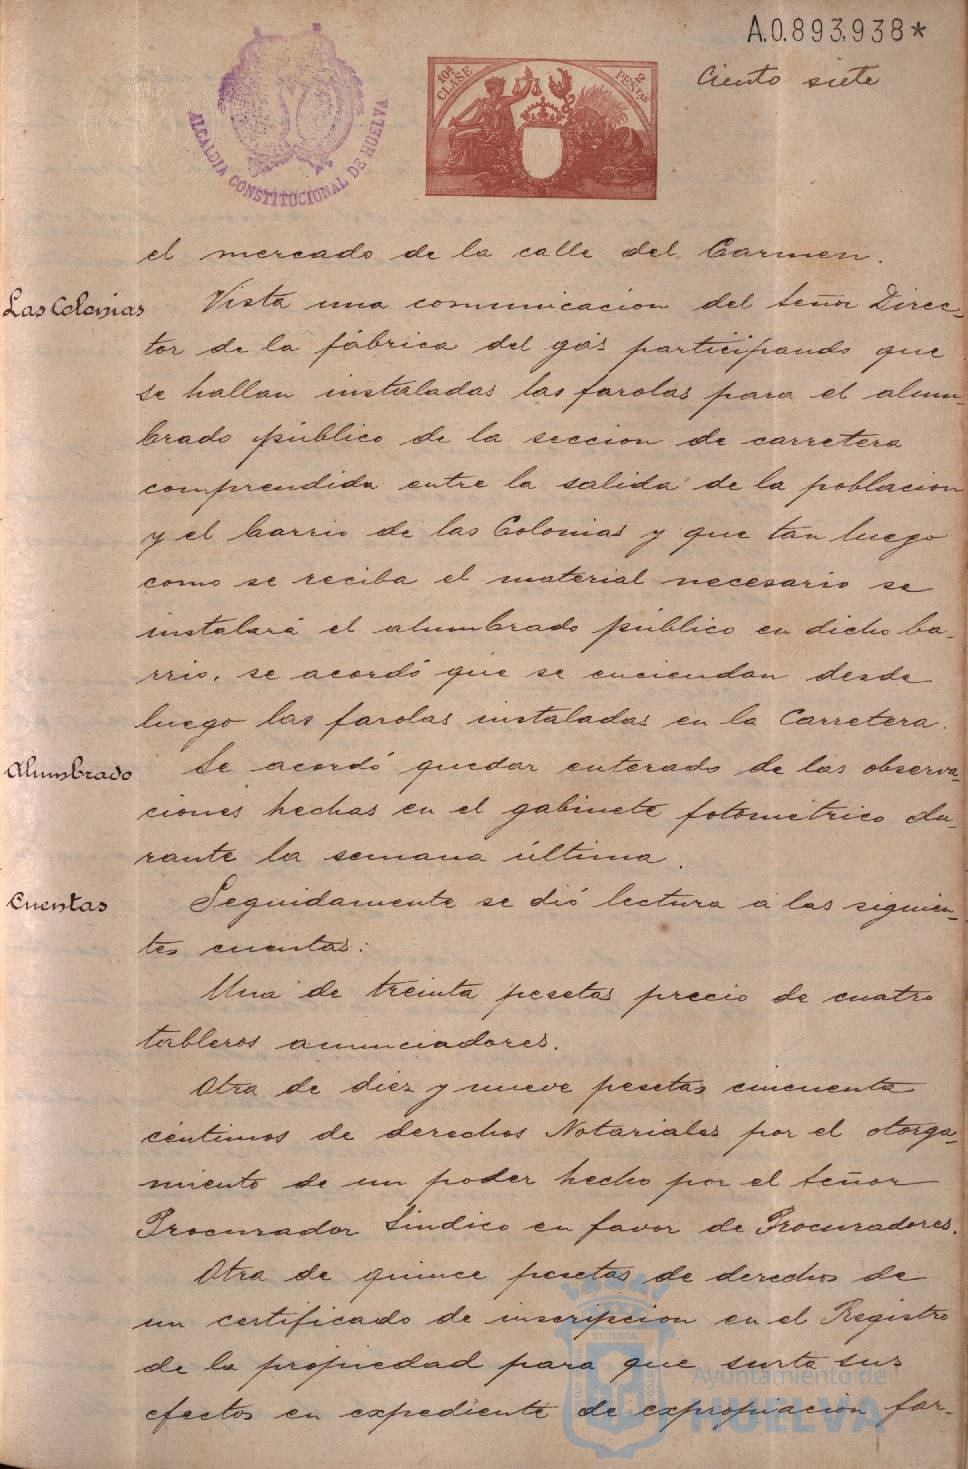 A.0.893,938*
Ciento siete
ALCALDIA CONSTITUCIONAL DE HUELVA
10ª CLASE
2 PESETAS
el mercado de la calle del Carmen.
Las Colonias
Vista una comunicacion del Señor Direc-
tor de la fábrica del gas participando que
se hallan instaladas las farolas para el alum-
brado público de la seccion de carretera
comprendida entre la salida de la poblacion
y el barrio de las Colonias y que tan luego
como se reciba el material necesario se
instalará el alumbrado público en dicho ba-
rrio, se acordó que se enciendan desde
luego las farolas instaladas en la Carretera.
Alumbrado
Se acordó quedar enterado de las observa-
ciones hechas en el gabinete fotométrico du-
rante la semana última.
Cuentas
Seguidamente se dió lectura a las siguien-
tes cuentas:
Una de treinta pesetas precio de cuatro
tableros anunciadores.
Otra de diez y nueve pesetas cincuenta
céntimos de derechos Notariales por el otorga-
miento de un poder hecho por el Señor
Procurador Síndico en favor de Procuradores.
Otra de quince pesetas de derechos de
un certificado de inscripcion en el Registro
de la propiedad para que surta sus
efectos en expediente de expropiacion for-
Ayuntamiento de
HUELVA